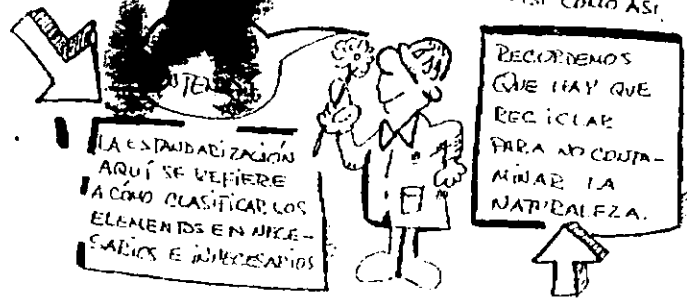 ASI COMO ASI.
LA ESTANDARIZACIÓN
AQUÍ SE REFIERE
A CÓMO CLASIFICAR LOS
ELEMENTOS EN NECE-
SARIOS E INNECESARIOS
RECORDEMOS
QUE HAY QUE
RECICLAR
PARA NO CONTA-
MINAR LA
NATURALEZA.